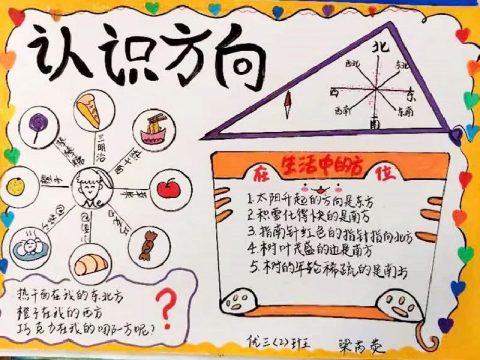 认识方向
北
西北
东北
西
东
西南
东南
南
三明治
热干面
苹果
橙子
Me
在生活中的方位
1.太阳升起的方向是东方
2.积雪化得快的是南方
3.指南针红色的指针指向北方
4.树叶茂盛的边是南方
5.树的年轮稀疏的是南方
热干面在我的东北方
橙子在我的西方
巧克力在我的哪一方呢?
?
优三(2)班